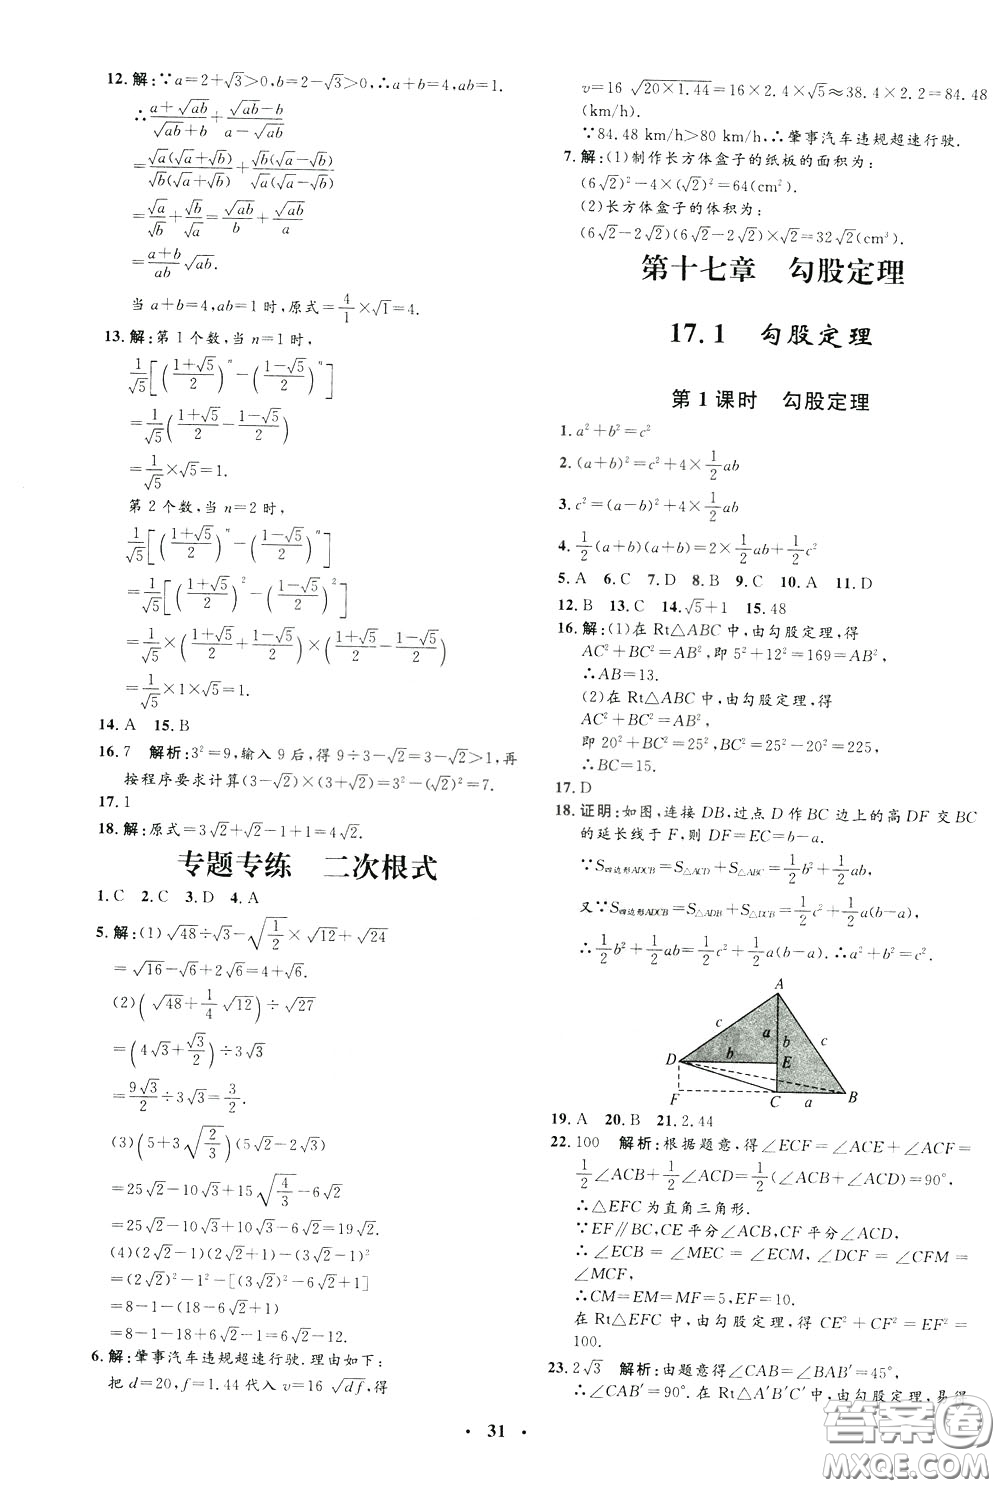 12.解:∵a=2+√3>0,b=2-√3>0,∴a+b=4,ab=1.
∴(a+√ab)/(√ab+b)+(√ab-b)/(a-√ab)
=√a(√a+√b)/√b(√a+√b)+√b(√a-√b)/√a(√a-√b)
=√a/√b+√b/√a=√ab/b+√ab/a
=(a+b)/ab √ab.
当a+b=4,ab=1时,原式=4/1×√1=4.
13.解:第1个数,当n=1时,
1/√5[((1+√5)/2)^n-((1-√5)/2)^n]
=1/√5((1+√5)/2-(1-√5)/2)
=1/√5×√5=1.
第2个数,当n=2时,
1/√5[((1+√5)/2)^n-((1-√5)/2)^n]
=1/√5[((1+√5)/2)²-((1-√5)/2)²]
=1/√5×((1+√5)/2+(1-√5)/2)×((1+√5)/2-(1-√5)/2)
=1/√5×1×√5=1.
14.A 15.B
16.7 解析:3²=9,输入9后,得9÷3-√2=3-√2>1,再
按程序要求计算(3-√2)×(3+√2)=3²-(√2)²=7.
17.1
18.解:原式=3√2+√2-1+1=4√2.
专题专练 二次根式
1.C 2.C 3.D 4.A
5.解:(1)√48÷√3-√(1/2)×√12+√24
=√16-√6+2√6=4+√6.
(2)(√48+1/4√12)÷√27
=(4√3+√3/2)÷3√3
=9√3/2÷3√3=3/2.
(3)(5+3√(2/3))(5√2-2√3)
=25√2-10√3+15√(4/3)-6√2
=25√2-10√3+10√3-6√2=19√2.
(4)(2√2-1)(2√2+1)-(1-3√2)²
=(2√2)²-1²-[(3√2)²-6√2+1]
=8-1-(18-6√2+1)
=8-1-18+6√2-1=6√2-12.
6.解:肇事汽车违规超速行驶.理由如下:
把d=20,f=1.44代入v=16√df,得
v=16√(20×1.44)=16×2.4×√5≈38.4×2.2=84.48
(km/h).
∵84.48 km/h>80 km/h,∴肇事汽车违规超速行驶.
7.解:(1)制作长方体盒子的纸板的面积为:
(6√2)²-4×(√2)²=64(cm²).
(2)长方体盒子的体积为:
(6√2-2√2)(6√2-2√2)×√2=32√2(cm³).
第十七章 勾股定理
17.1 勾股定理
第1课时 勾股定理
1.a²+b²=c²
2.(a+b)²=c²+4×1/2ab
3.c²=(a-b)²+4×1/2ab
4.1/2(a+b)(a+b)=2×1/2ab+1/2c²
5.A 6.C 7.D 8.B 9.C 10.A 11.D
12.B 13.C 14.√5+1 15.48
16.解:(1)在Rt△ABC中,由勾股定理,得
AC²+BC²=AB²,即5²+12²=169=AB²,
∴AB=13.
(2)在Rt△ABC中,由勾股定理,得
AC²+BC²=AB²,
即20²+BC²=25²,BC²=25²-20²=225,
∴BC=15.
17.D
18.证明:如图,连接DB,过点D作BC边上的高DF交BC
的延长线于F,则DF=EC=b-a.
∵S四边形ADCB=S△ACD+S△ABC=1/2b²+1/2ab,
又∵S四边形ADCB=S△ADB+S△DCB=1/2c²+1/2a(b-a),
∴1/2b²+1/2ab=1/2c²+1/2a(b-a),∴a²+b²=c².
A
c
a
b
c
D
b
E
F
C
a
B
19.A 20.B 21.2.44
22.100 解析:根据题意,得∠ECF=∠ACE+∠ACF=
1/2∠ACB+1/2∠ACD=1/2(∠ACB+∠ACD)=90°,
∴△EFC为直角三角形.
∵EF∥BC,CE平分∠ACB,CF平分∠ACD.
∴∠ECB=∠MEC=∠ECM,∠DCF=∠CFM=
∠MCF,
∴CM=EM=MF=5,EF=10.
在Rt△EFC中,由勾股定理,得CE²+CF²=EF²=
100.
23.2√3 解析:由题意得∠CAB=∠BAB′=45°,
∴∠CAB′=90°.在Rt△A′B′C′中,由勾股定理,易得
· 31 ·
答案圈
MXQE.COM